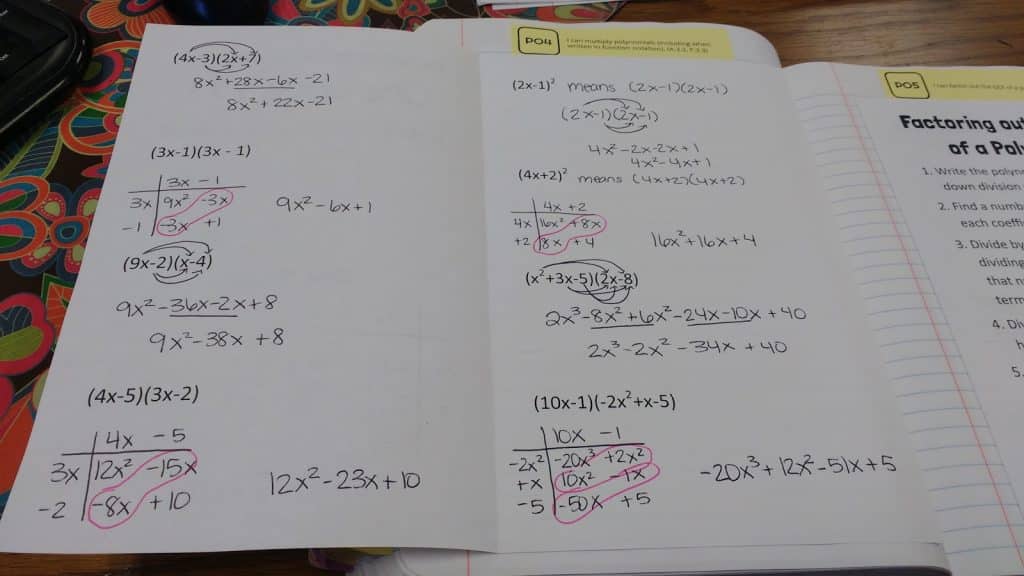 (4x-3)(2x+7)
8x²+28x-6x-21
8x²+22x-21
(3x-1)(3x - 1)
3x -1
3x 9x² -3x
-1 -3x +1
9x²-6x+1
(9x-2)(x-4)
9x²-36x-2x+8
9x²-38x+8
(4x-5)(3x-2)
4x -5
3x 12x² -15x
-2 -8x +10
12x²-23x+10
PO4
I can multiply polynomials (including when
written in function notation).
(2x-1)² means (2x-1)(2x-1)
(2x-1)(2x-1)
4x²-2x-2x+1
4x²-4x+1
(4x+2)² means (4x+2)(4x+2)
4x +2
4x 16x² +8x
+2 8x +4
16x²+16x+4
(x²+3x-5)(2x-8)
2x³-8x²+6x²-24x-10x+40
2x³-2x²-34x+40
(10x-1)(-2x²+x-5)
10x -1
-2x² -20x³ +2x²
+x 10x² -1x
-5 -50x +5
-20x³+12x²-51x+5
PO5
Factoring out
of a Pol
1. Write the polyn
down division
2. Find a numb
each coeffi
3. Divide by
dividing
that n
term
4. Di
h
5.